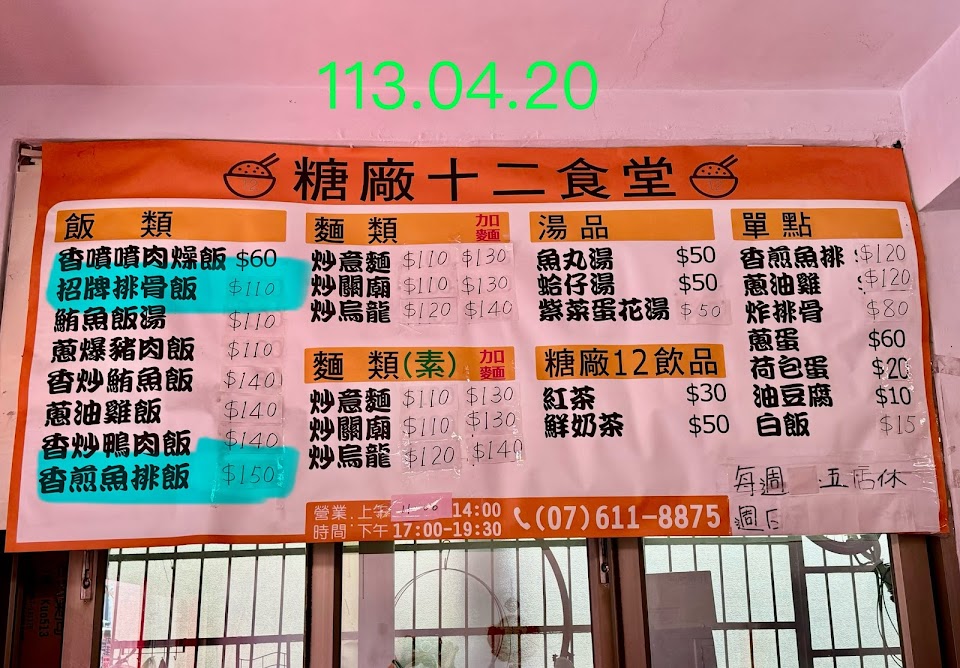 113.04.20
糖廠十二食堂
飯 類
香噴噴肉燥飯 $60
招牌排骨飯 $110
鮪魚飯湯 $110
蔥爆豬肉飯 $110
香炒鮪魚飯 $140
蔥油雞飯 $140
香炒鴨肉飯 $140
香煎魚排飯 $150
麵 類 加口麥面
炒意麵 $110 $130
炒關廟 $110 $130
炒烏龍 $120 $140
麵 類(素) 加口麥面
炒意麵 $110 $130
炒關廟 $110 $130
炒烏龍 $120 $140
湯品
魚丸湯 $50
蛤仔湯 $50
紫菜蛋花湯 $50
糖廠12飲品
紅茶 $30
鮮奶茶 $50
單點
香煎魚排 $120
蔥油雞 $120
炸排骨 $80
蔥蛋 $60
荷包蛋 $20
油豆腐 $10
白飯 $15
營業 上午 14:00
時間:下午 17:00-19:30
(07)611-8875
每週 五店休
週日